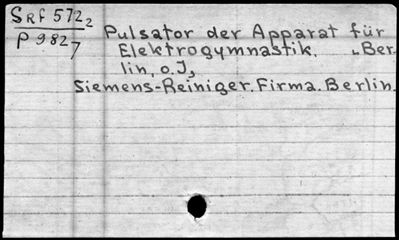 SRF 572 2
P 982 7
Pulsator der Apparat für
Elektrogymnastik. Ber-
lin, o.J.
Siemens-Reiniger.Firma.Berlin.